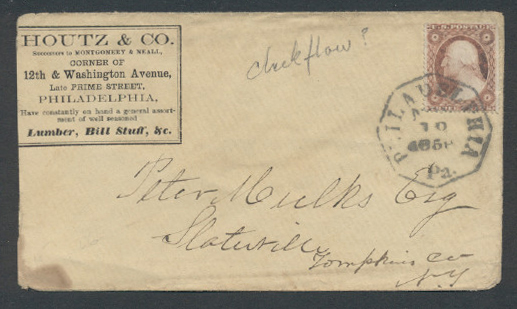 HOUTZ & CO.
Successors to MONTGOMERY & NEALL,
CORNER OF
12th & Washington Avenue,
Late PRIME STREET,
PHILADELPHIA,
Have constantly on hand a general assort-
ment of well seasoned
Lumber, Bill Stuff, &c.
U.S. POSTAGE
PHILADELPHIA
10
Pa.
Peter Mulks Esq
Slaterville
Tompkins Co
N.Y